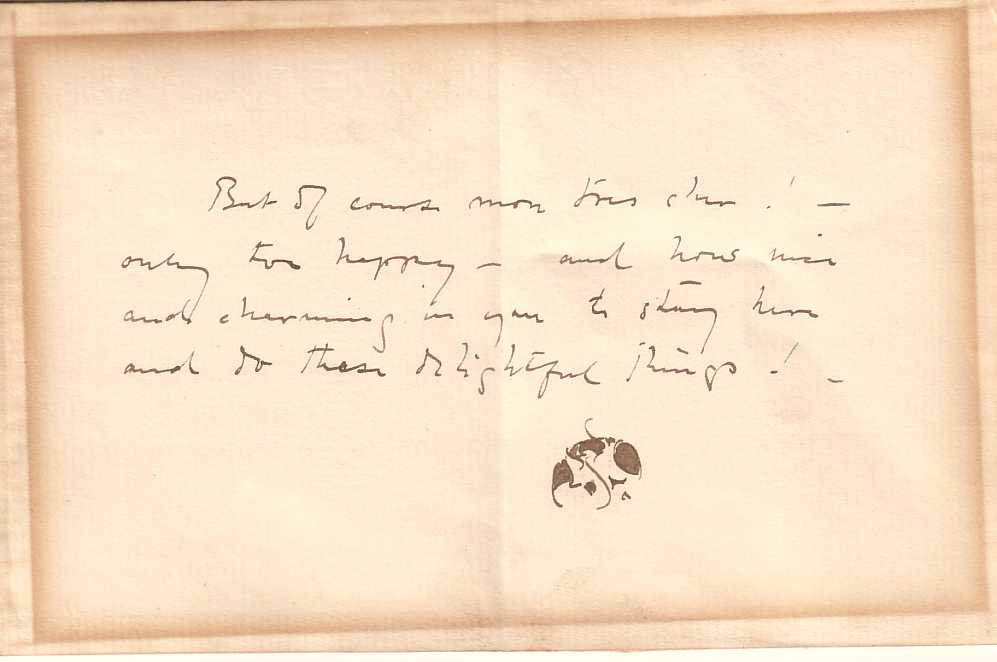 But of course mon tres cher ! —
only too happy — and how nice
and charming in you to stay here
and do these delightful things ! -